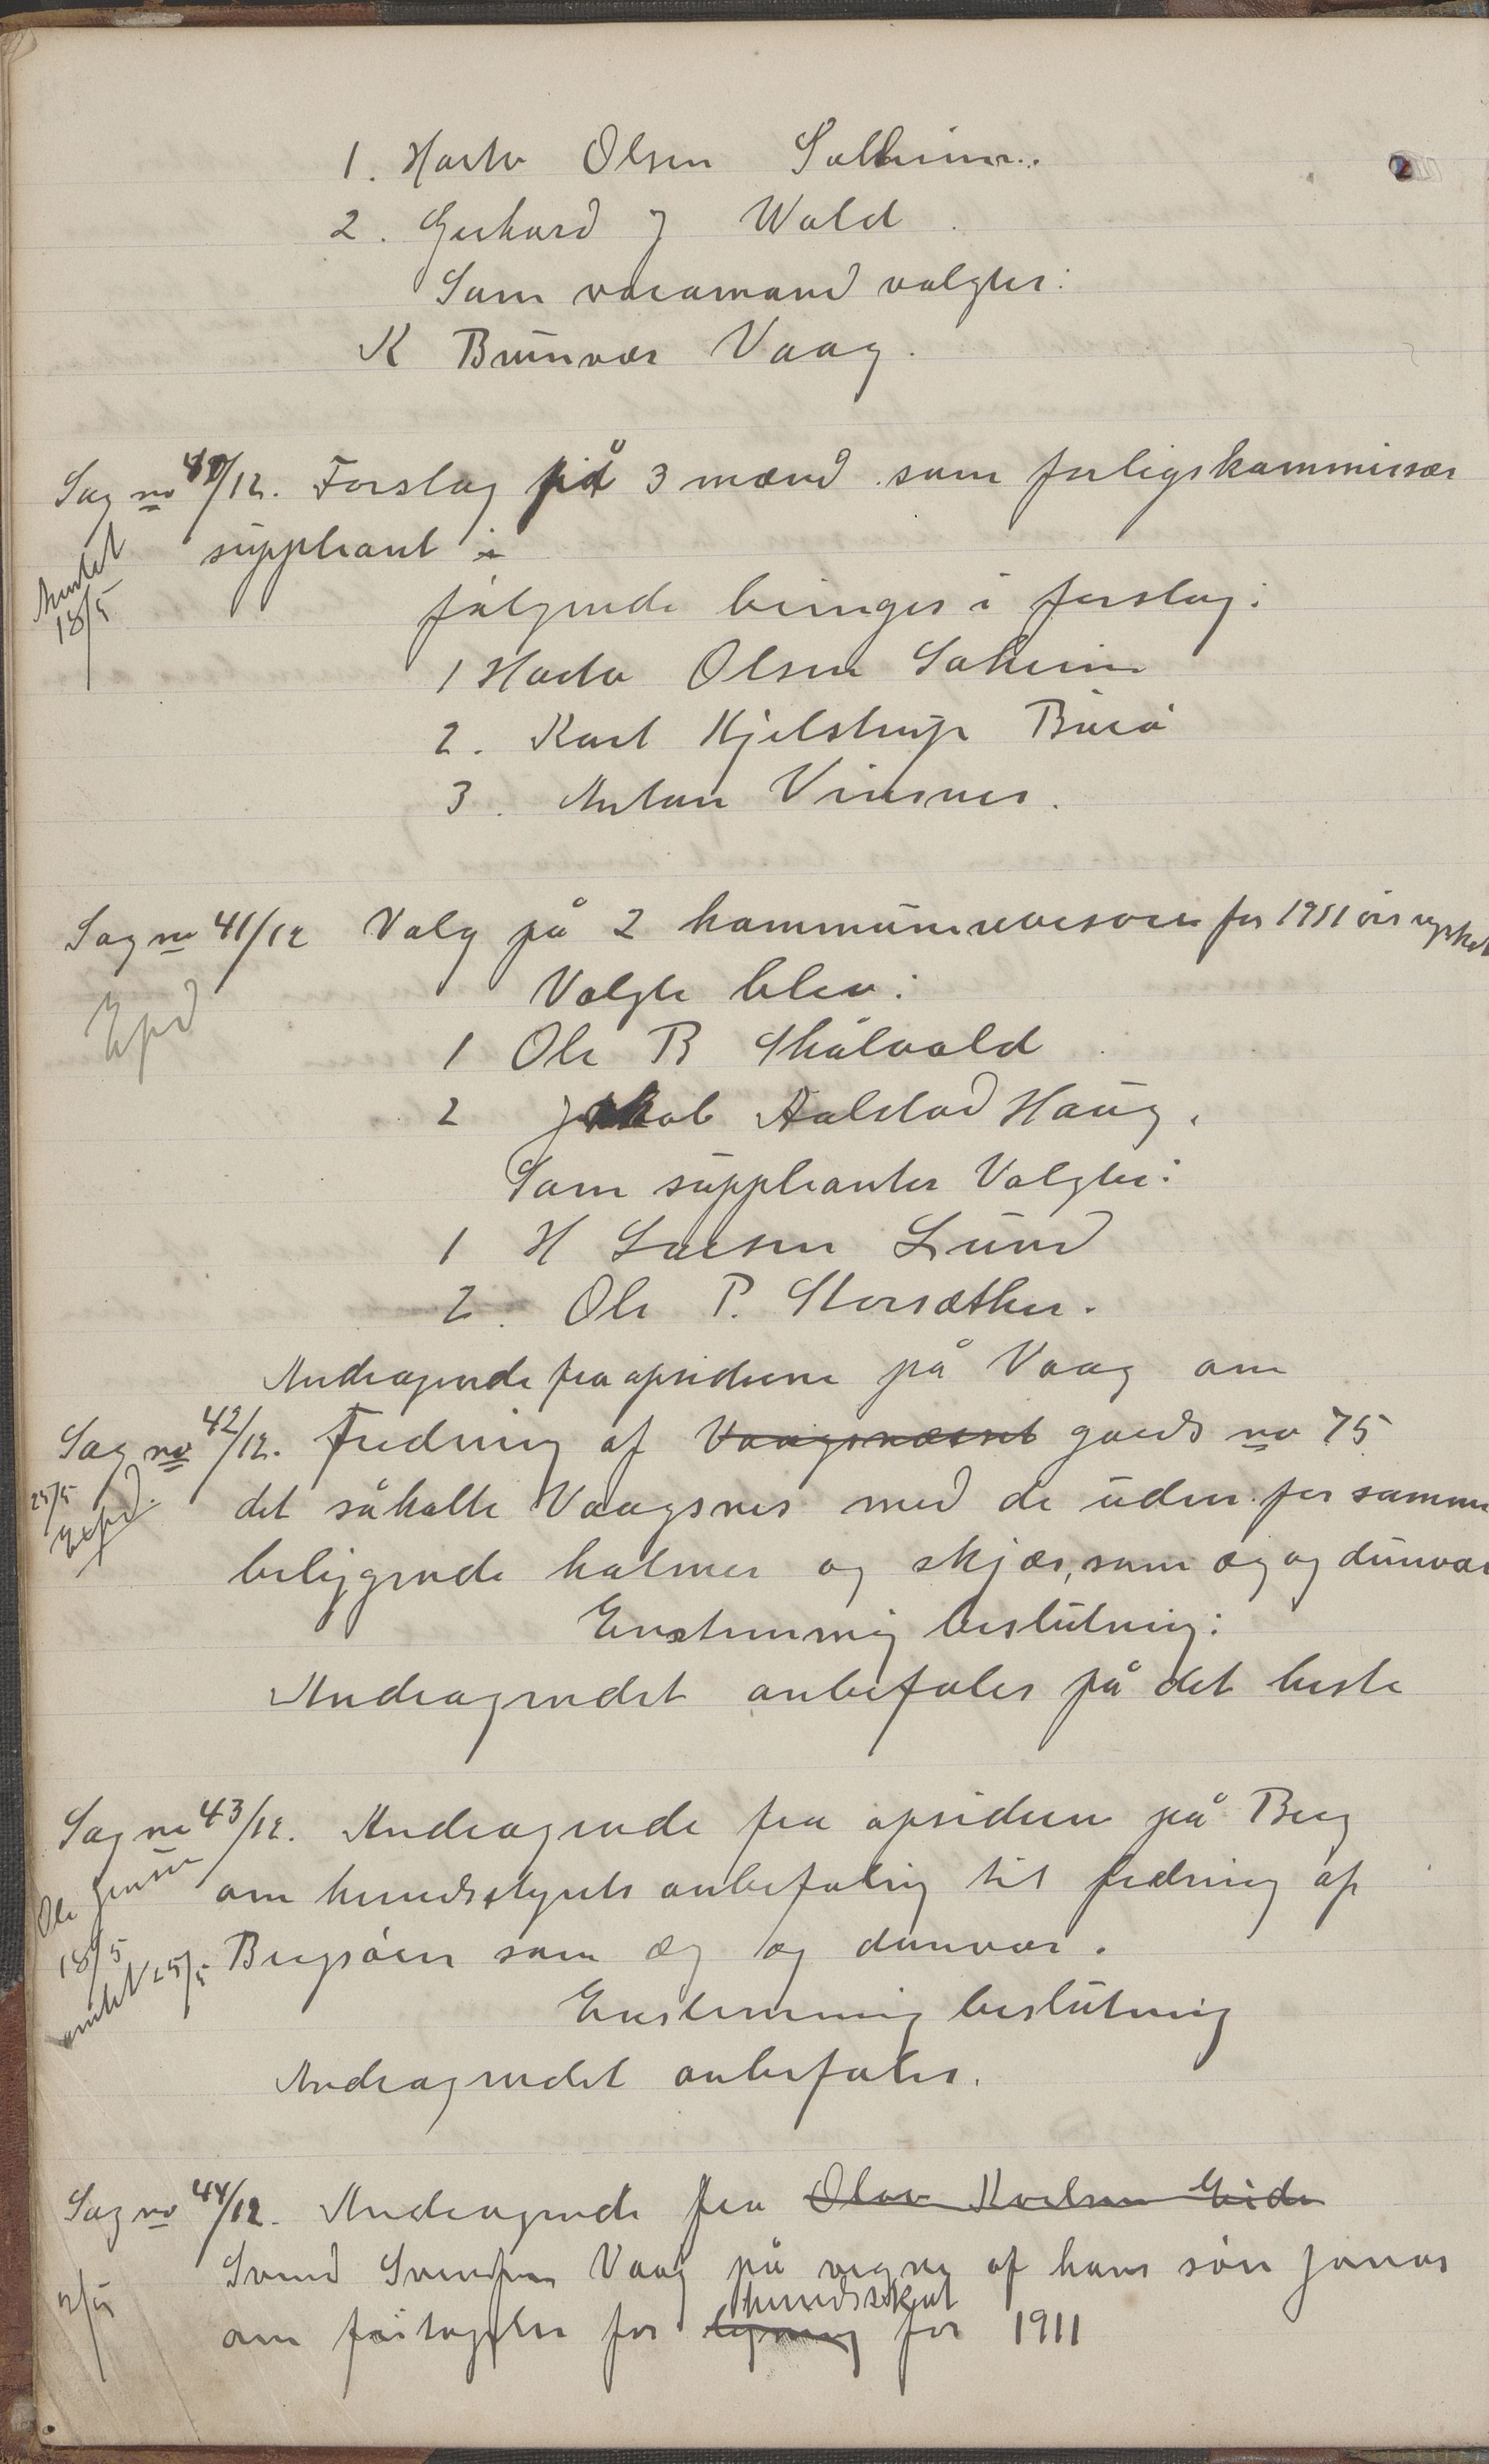 1. Hartv Olsen Solheim.
2. Gerhard J Wold.
Som varamand valgtes:
K Brunvær Vaag.
Sag no 40/12. Forslag på 3 mænd som forligskommissær
suppleant i
Amtet 18/5
følgende bringes i forslag:
1 Hartv Olsen Solheim
2. Karl Kjelstrup Burø
3. Anton Vinsnes.
Sag no 41/12 Valg på 2 kommunerevisorer for 1911 års regnskab
Expd
Valgte blev:
1 Ole B Skålvold
2 Jakob Aalstad Haug.
Som suppleanter Valgtes:
1 H Larsen Lund
2. Ole P. Storsæther.
Andragende fra opsidderne på Vaag om
Sag no 42/12. Fredning af Vaagsnæsset gaards no 75
25/5 Expd.
det såkalte Vaagsnes med de uden for samme
beliggende holmer og skjær, som æg og dunvær
Enstemmig beslutning:
Andragendet anbefales på det beste
Sag no 43/12. Andragende fra opsidern på Berg
om herredsstyrets anbefaling til fredning af
Ole Jensen 18/5
Bergsøen som æg og dunvær.
amtet 25/5
Enstemmig beslutning
Andragendet anbefales.
Sag no 44/12. Andragende fra Olav Karlsen Eide
Svend Svendsen Vaag på vegne af hans søn Jonas
herredsskat
om fritagelse for ligning for 1911